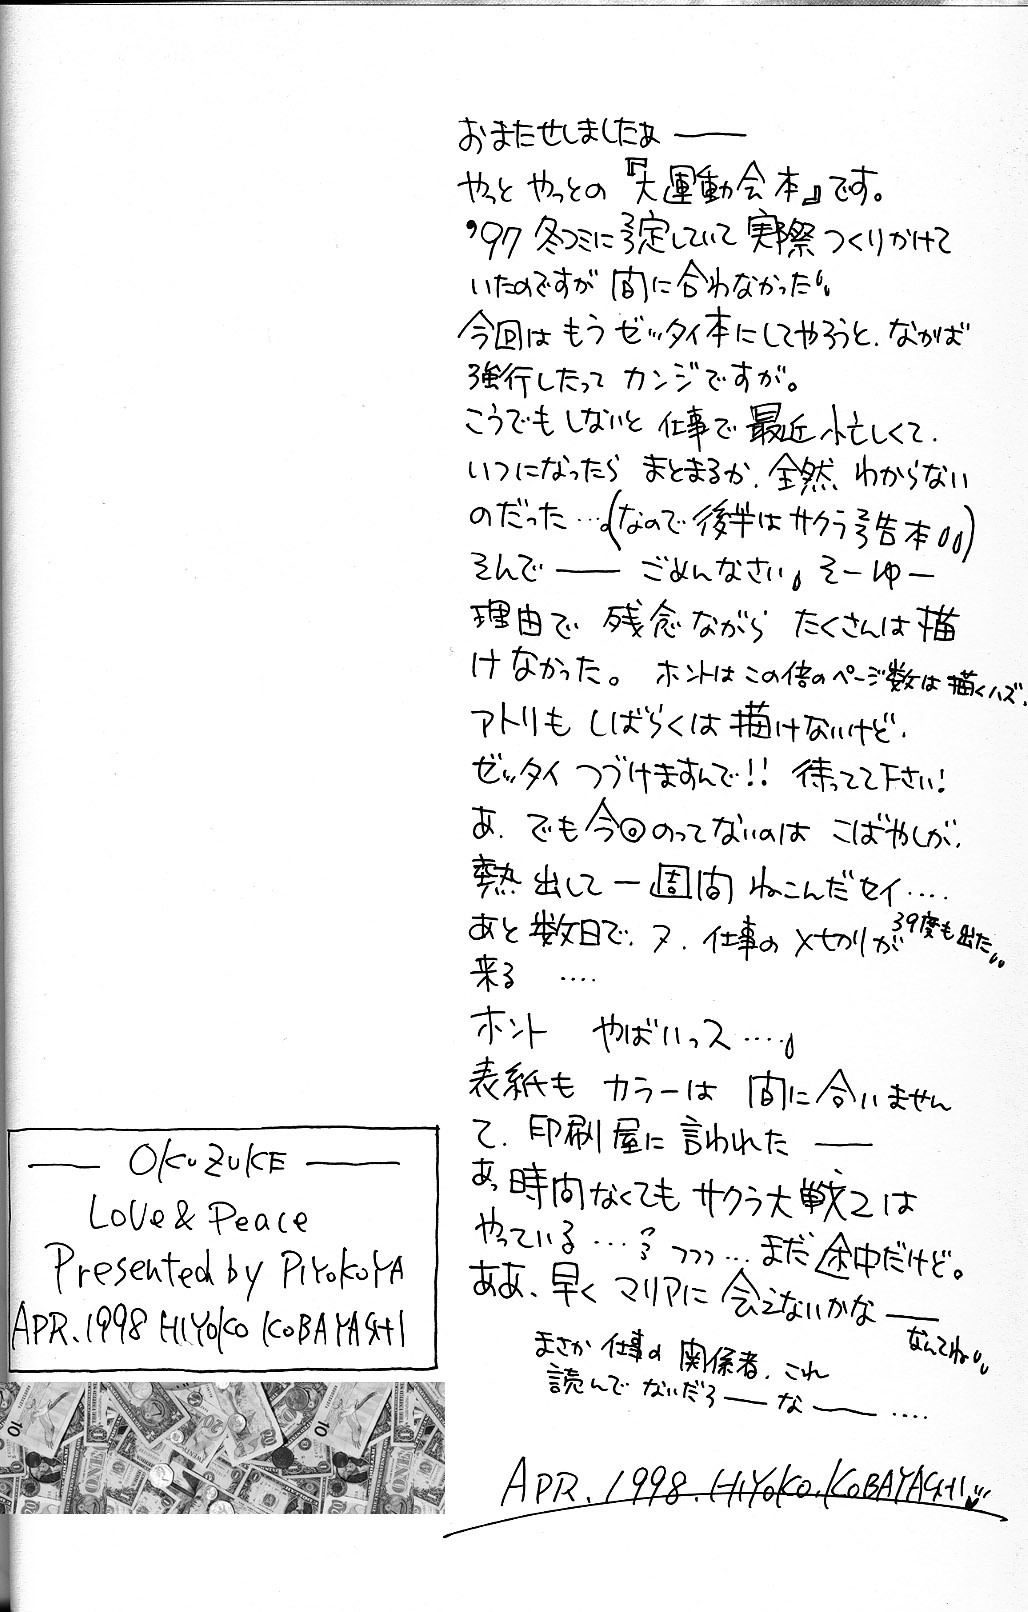 おまたせしましたぁ――
やっと やっとの『大運動会本』です。
'97 冬コミに予定していて 実際 つくりかけて
いたのですが 間に合わなかった
今回は もう ゼッタイ本にしてやろうと、なかば
強行したって カンジですが。
こうでも しないと 仕事で 最近 忙しくて、
いつになったら まとまるか、全然 わからない
のだった…(なので 後半は サクラ予告本)
そんで―― ごめんなさい そーゆー
理由で 残念ながら たくさんは 描
けなかった。 ホントは この倍の ページ数は 描くハズ、
アトリも しばらくは 描けないけど、
ゼッタイ つづけますんで!! 待ってて下さい!
あ、でも 今回 のってないのは こばやしが、
熱出して 一週間 ねこんだセイ‥‥
39度も出た
あと 数日で、又、仕事の 〆切りが
来る ‥‥
ホント やばいっス‥‥
表紙も カラーは 間に合いません
て、印刷屋に 言われた ――
あっ 時間なくても サクラ大戦2は
やっている…? フフフ… まだ 途中だけど。
ああ、早く マリアに 会えないかな――
なんてね
まさか 仕事の 関係者、これ
読んで ないだろ――な――‥‥
APR.1998.HIYOKO.KOBAYASHI
―― OKUZUKE ――
Love & Peace
Presented by PIYOKOYA
APR.1998 HIYOKO KOBAYASHI